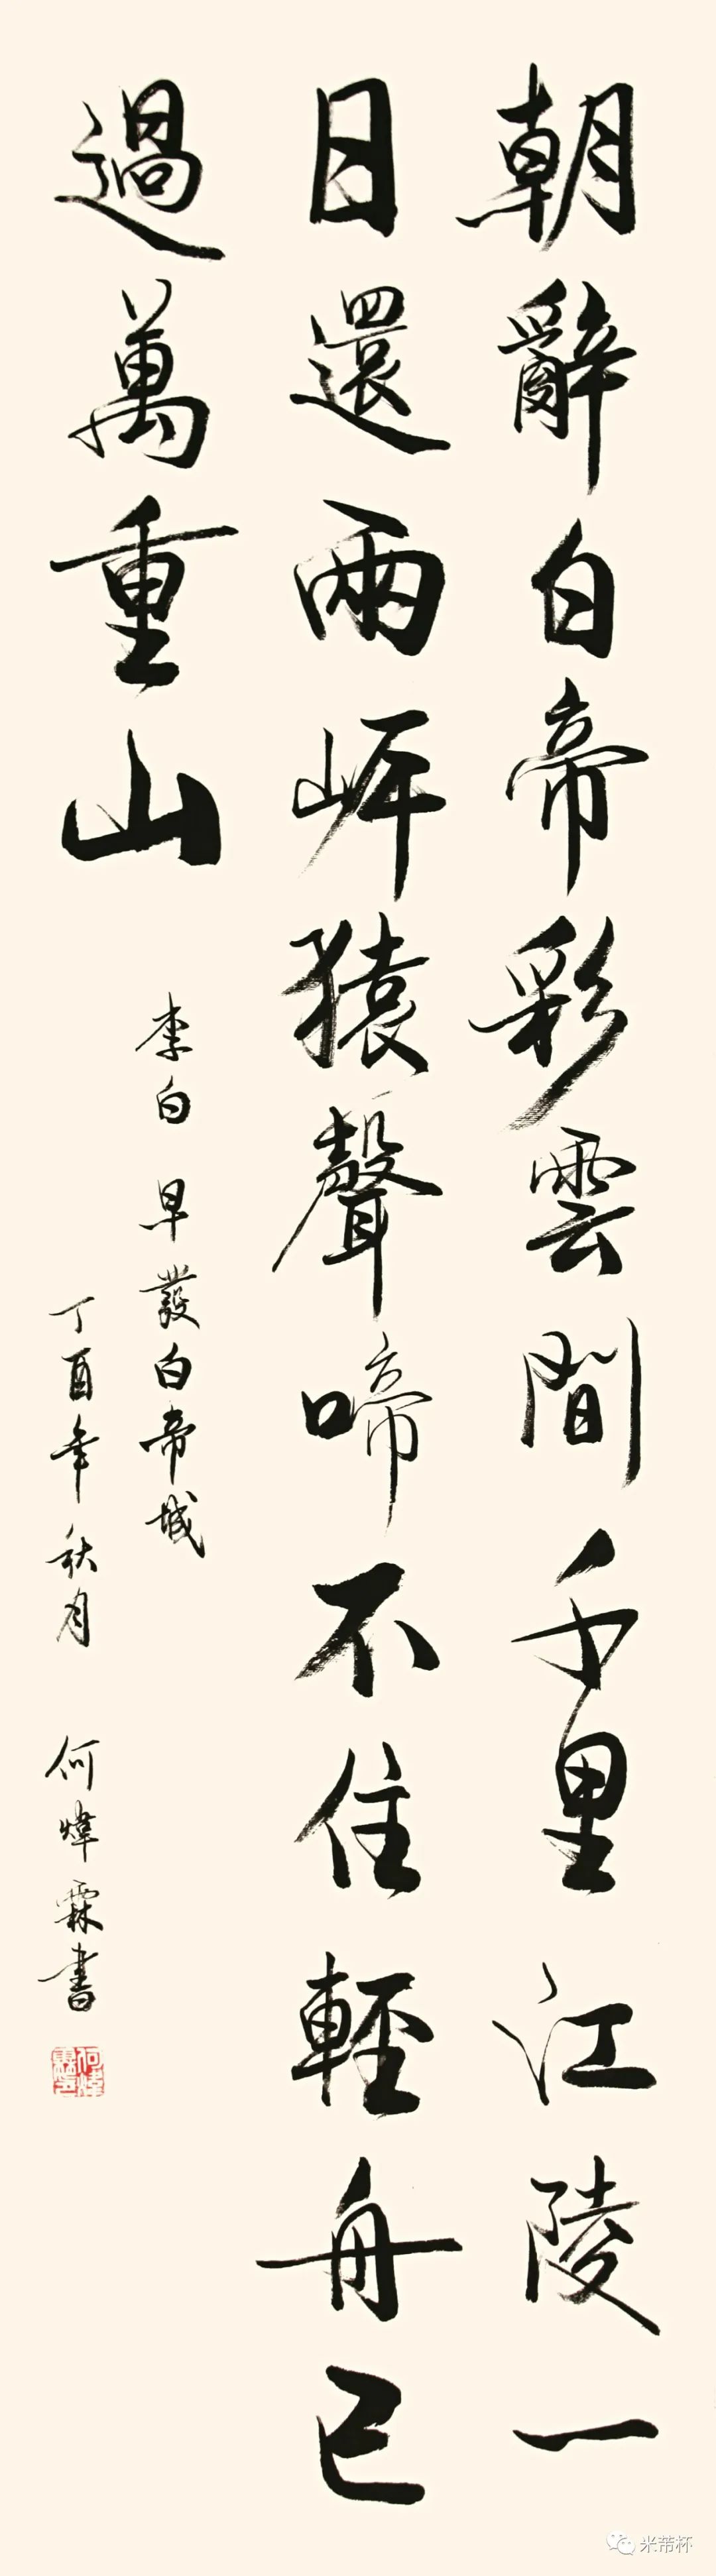 朝辭白帝彩雲間千里江陵一
日還兩岸猿聲啼不住輕舟已
過萬重山
李白 早發白帝城
丁酉年秋月 何煒霖書
何煒霖印
米芾杯